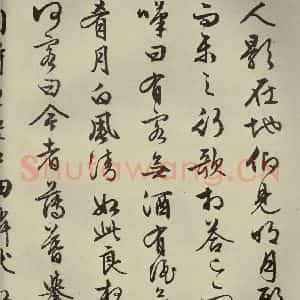 人影在地仰見明月顧
而樂之行歌相答已
嘆曰有客無酒有酒
肴月白風清如此良夜
何客曰今者薄暮舉
Shufawang.cn